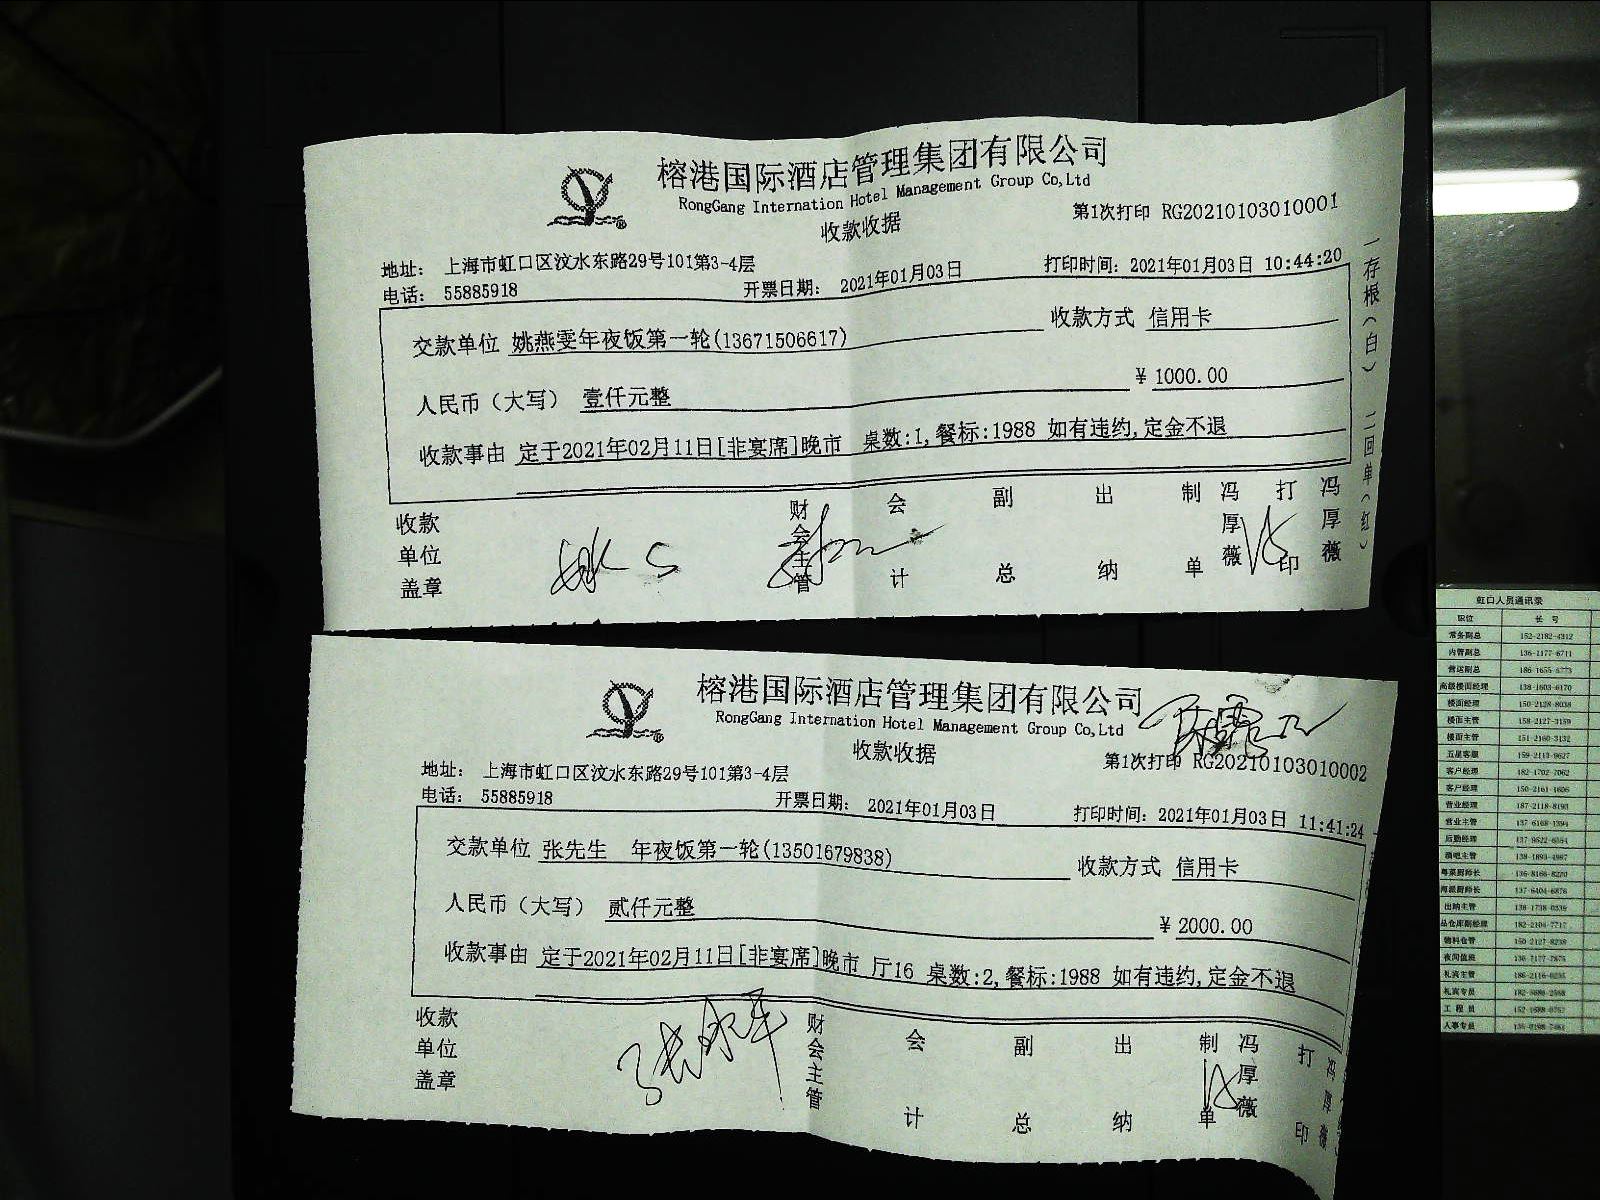 榕港国际酒店管理集团有限公司
RongGang Internation Hotel Management Group Co,Ltd
收款收据
第1次打印 RG20210103010001
地址： 上海市虹口区汶水东路29号101第3-4层
电话： 55885918 开票日期： 2021年01月03日 打印时间：2021年01月03日 10:44:20
交款单位 姚燕雯年夜饭第一轮(13671506617) 收款方式 信用卡
人民币（大写） 壹仟元整 ￥ 1000.00
收款事由 定于2021年02月11日[非宴席]晚市 桌数:1,餐标:1988 如有违约,定金不退
收款单位盖章 财会主管 会计 副总 出纳 制单 冯厚薇 打印 冯厚薇
一存根（白） 二回单（红）
榕港国际酒店管理集团有限公司
RongGang Internation Hotel Management Group Co,Ltd
收款收据
第1次打印 RG20210103010002
地址： 上海市虹口区汶水东路29号101第3-4层
电话： 55885918 开票日期： 2021年01月03日 打印时间：2021年01月03日 11:41:24
交款单位 张先生 年夜饭第一轮(13501679838) 收款方式 信用卡
人民币（大写） 贰仟元整 ￥ 2000.00
收款事由 定于2021年02月11日[非宴席]晚市 厅16 桌数:2,餐标:1988 如有违约,定金不退
收款单位盖章 财会主管 会计 副总 出纳 制单 冯厚薇 打印 冯厚薇
虹口人员通讯录
职位 长号
常务副总 152-2182-4312
内管副总 136-1177-6711
营运副总
高级楼面经理 138-1603-6170
楼面经理 150-2128-8038
楼面主管 158-2127-3159
楼面主管 151-2160-3132
五星客服 159-2113-9627
客户经理 182-1702-7062
客户经理 150-2161-1606
营业经理 187-2118-8193
营业主管
后勤经理
酒吧主管
粤菜厨师长
海派厨师长
出纳主管
物料仓管
夜间值班
礼宾主管
礼宾专员
工程员
人事专员